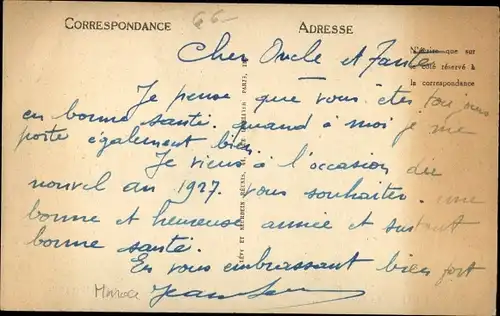 CORRESPONDANCE
ADRESSE
66-
N'écrire que sur
le côté réservé à
la correspondance
Cher Oncle et Tante
Je pense que vous êtes toujours
en bonne santé. quand à moi je me
porte également bien.
Je viens à l'occasion du
nouvel an 1927. vous souhaiter une
bonne et heureuse année et surtout
bonne santé.
En vous embrassant bien fort
Maroc
LÉVY ET NEURDEIN RÉUNIS, PARIS